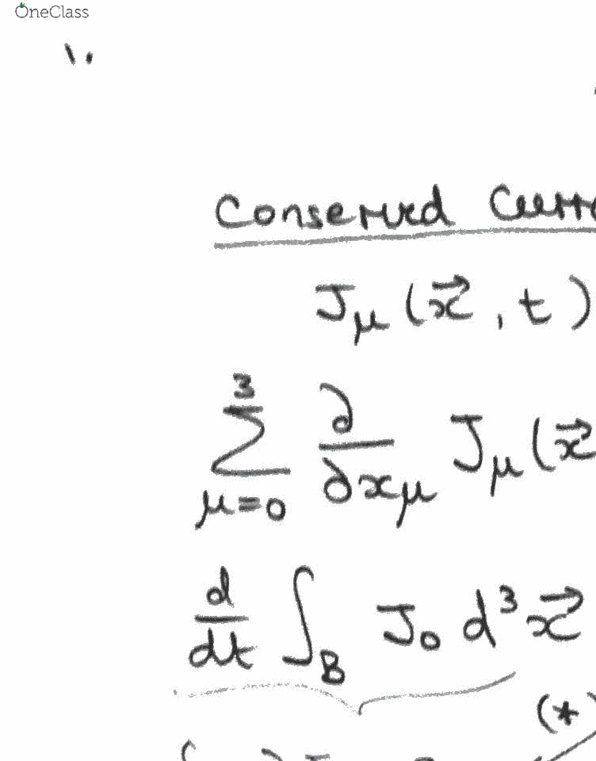 OneClass
1.
Conserved Curre
J_μ (x⃗, t)
∑_{μ=0}^{3} ∂/∂x_μ J_μ (x⃗
d/dt ∫_B J_0 d³x⃗
(*)